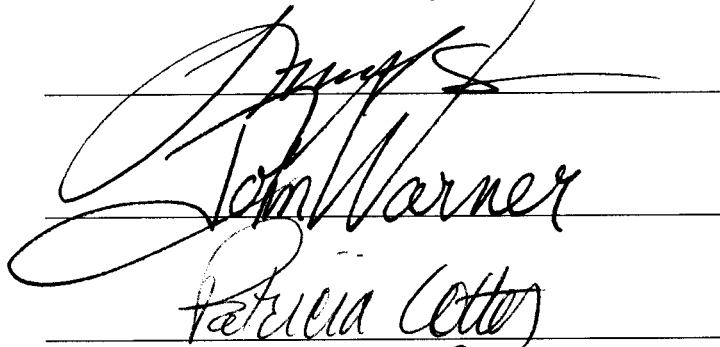 John Warner
Patricia Cotter